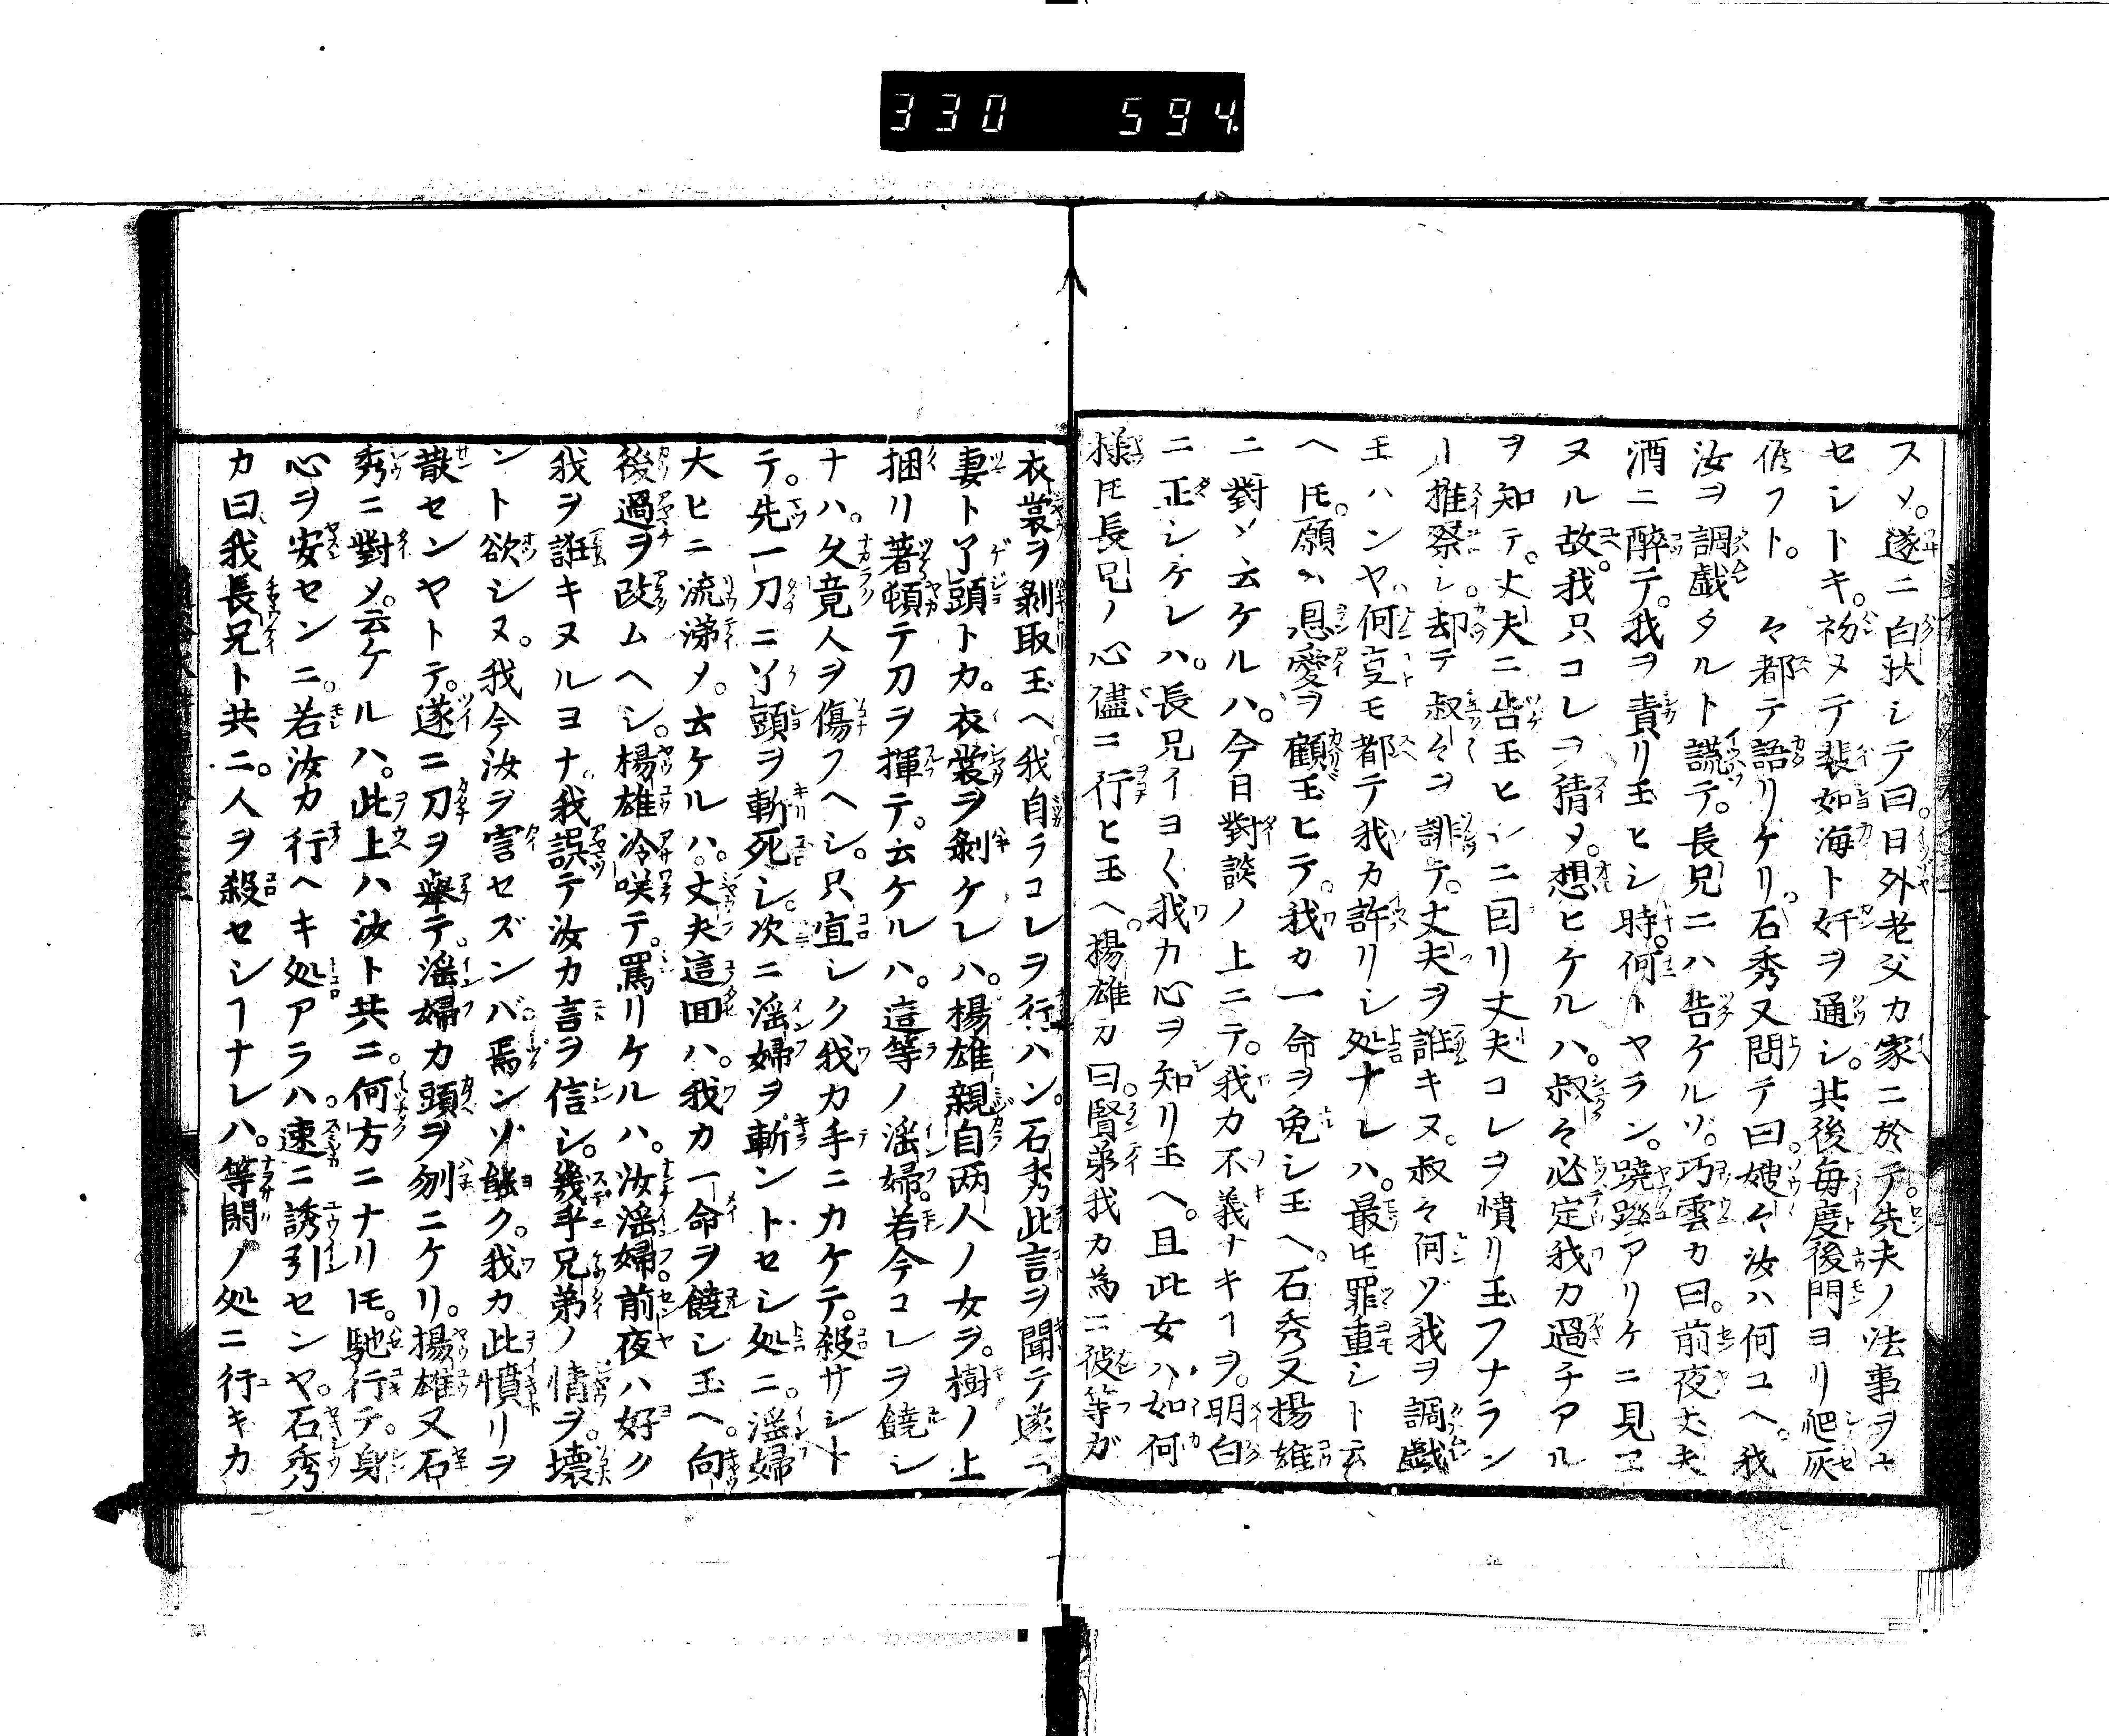 330 594
スメ。遂ニ白状シテ曰。日外老父カ家ニ於テ。先夫ノ法事ヲナ
セシトキ。初メテ裴如海ト奸ヲ通シ。其後毎度後門ヨリ爬灰
フト。々都テ語リケリ。石秀又問テ曰。嫂々汝ハ何ユヘ。我
汝ヲ調戯タルト謊テ。長兄ニハ告ケルソ。巧雲カ曰。前夜丈夫
酒ニ醉テ。我ヲ責リ玉ヒシ時。何トヤラン。蹺蹊アリケニ見ヱ
ヌル故。我只コレヲ猜メ。想ヒケルハ。叔々必定我カ過チアル
ヲ知テ。丈夫ニ告玉ヒシニ因リ丈夫コレヲ憤リ玉フナラン
ト推察シ。却テ叔々ヲ誹テ。丈夫ヲ誑キヌ。叔々何ゾ我ヲ調戯
玉ハンヤ何叓モ都テ我カ許リシ処ナレハ。最モ罪重シト云
ヘ𪜈。願ハ恩愛ヲ顧玉ヒテ。我カ一命ヲ免シ玉ヘ。石秀又揚雄
ニ對メ云ケルハ。今日對談ノ上ニテ。我カ不義ナキヿヲ。明白
ニ正シケレハ。長兄イヨ〱我カ心ヲ知リ玉ヘ。且此女ハ如何
様𪜈長兄ノ心儘ニ行ヒ玉ヘ。揚雄カ曰。賢弟我カ為ニ彼等ガ
衣裳ヲ剝取玉ヘ。我自ラコレヲ行ハン。石秀此言ヲ聞テ遂ニ
妻ト丫頭トカ。衣裳ヲ剝ケレハ。楊雄親自两人ノ女ヲ。樹ノ上
捆リ著頓テ刀ヲ揮テ。云ケルハ。這等ノ淫婦。若今コレヲ饒シ
ナハ。久竟人ヲ傷フヘシ。只宜シク我カ手ニカケテ。殺サント
テ。先一刀ニ丫頭ヲ斬死シ。次ニ淫婦ヲ斬ントセシ処ニ。淫婦
大ヒニ流涕メ。云ケルハ。丈夫這回ハ。我カ一命ヲ饒シ玉ヘ。向
後過ヲ改ムヘシ。楊雄冷咲テ。罵リケルハ。汝淫婦。前夜ハ好ク
我ヲ誑キヌルヨナ。我誤テ汝カ言ヲ信シ。幾乎兄弟ノ情ヲ。壊
ント欲シヌ。我今汝ヲ害セズンバ。焉ンソ能ク。我カ此憤リヲ
散センヤトテ。遂ニ刀ヲ舉テ。淫婦カ頭ヲ刎ニケリ。揚雄又石
秀ニ對メ。云ケルハ。此上ハ汝ト共ニ。何方ニナリ𪜈。馳行テ。身
心ヲ安センニ。若汝カ行ヘキ処アラハ。速ニ誘引センヤ。石秀
カ曰我長兄ト共ニ。人ヲ殺セシヿナレハ。等閑ノ処ニ行キカ